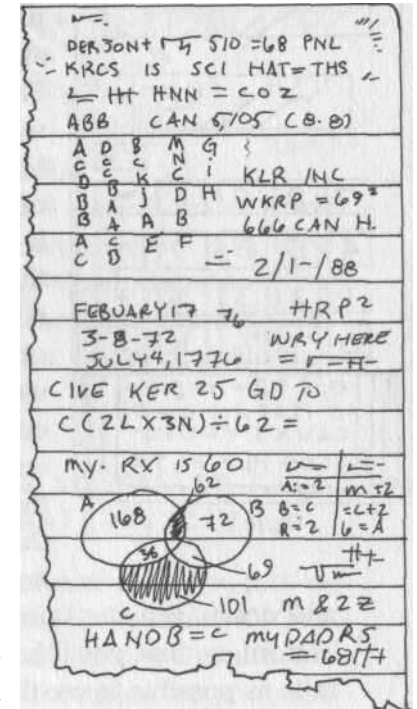 DERJONT 510 = 68 PNL
KRCS IS SCI HAT = THS
HH HNN = COZ
ABB CAN 5,105 (8.8)
A D B M G
C C C N i
D B K C KLR INC
B A J D H WKRP = 69²
B A A B 666 CAN H.
A B E F
C 2/1-/88
FEBUARY 17 76 HRP²
3-8-72 WRY HERE
JULY 4, 1776 = -H-
CIVE KER 25 GD TO
C(2LX3N)÷62=
MY. RX IS 60
62
A B
168 72
36
69
101
C
A:=2 m+2
B=C =L+2
R=2 6=A
m & 2 Z
HANDB=C MY DAD RS
= 681